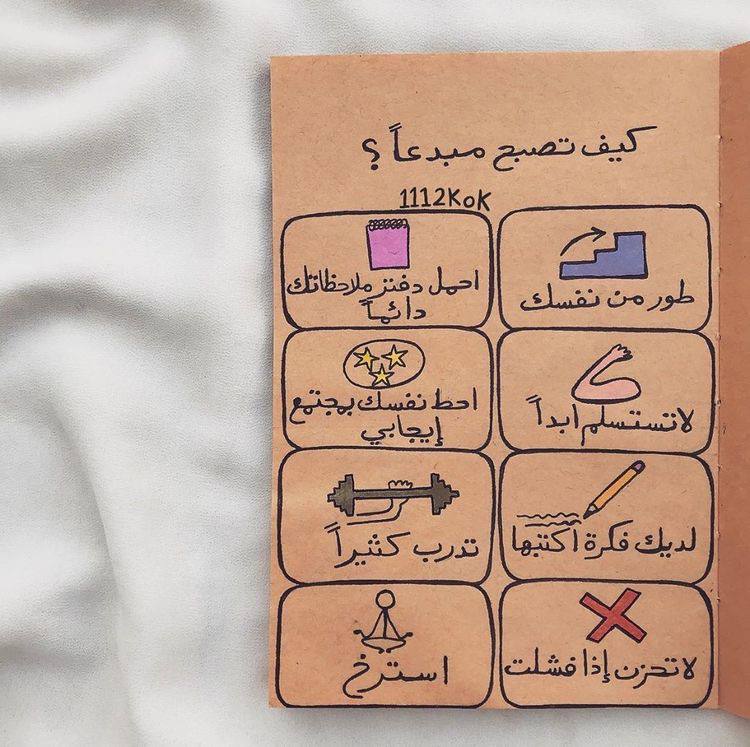 كيف تصبح مبدعاً ؟
1112KoK
طور من نفسك
احمل دفتر ملاحظاتك
دائماً
لاتستسلم ابداً
احط نفسك بمجتمع
إيجابي
لديك فكرة اكتبها
تدرب كثيراً
لاتحزن إذا فشلت
استرخ